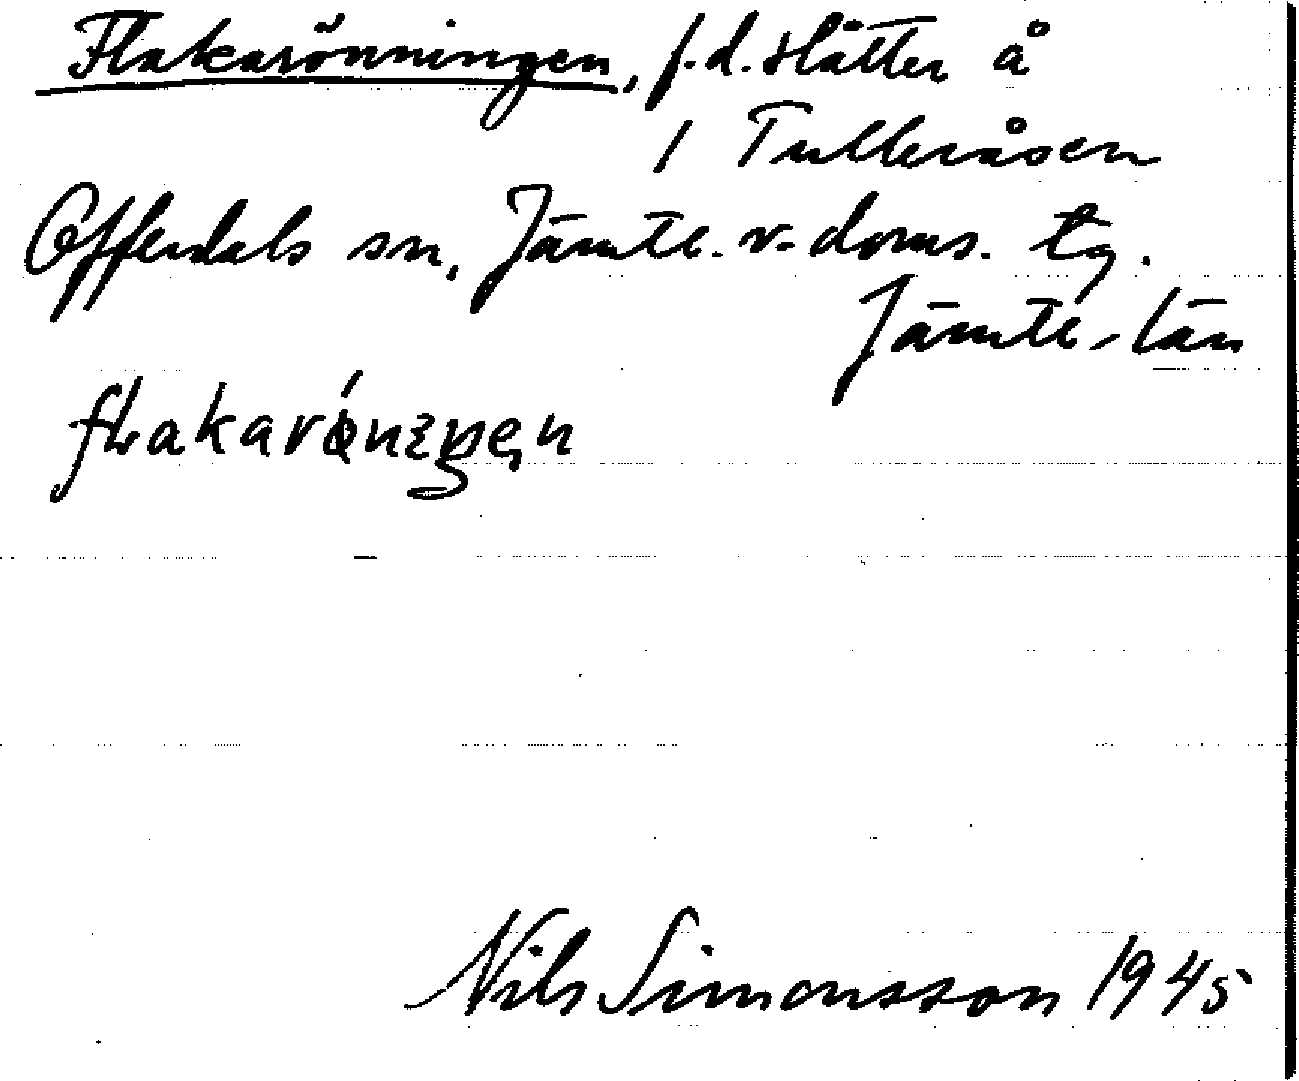 Flakarönningen, f.d. slåtter å
1 Tulleråsen
Offerdals sn, Jämtl. v. doms. tg.
Jämtl. län
flakarǿnıŋen
Nils Simonsson 1945